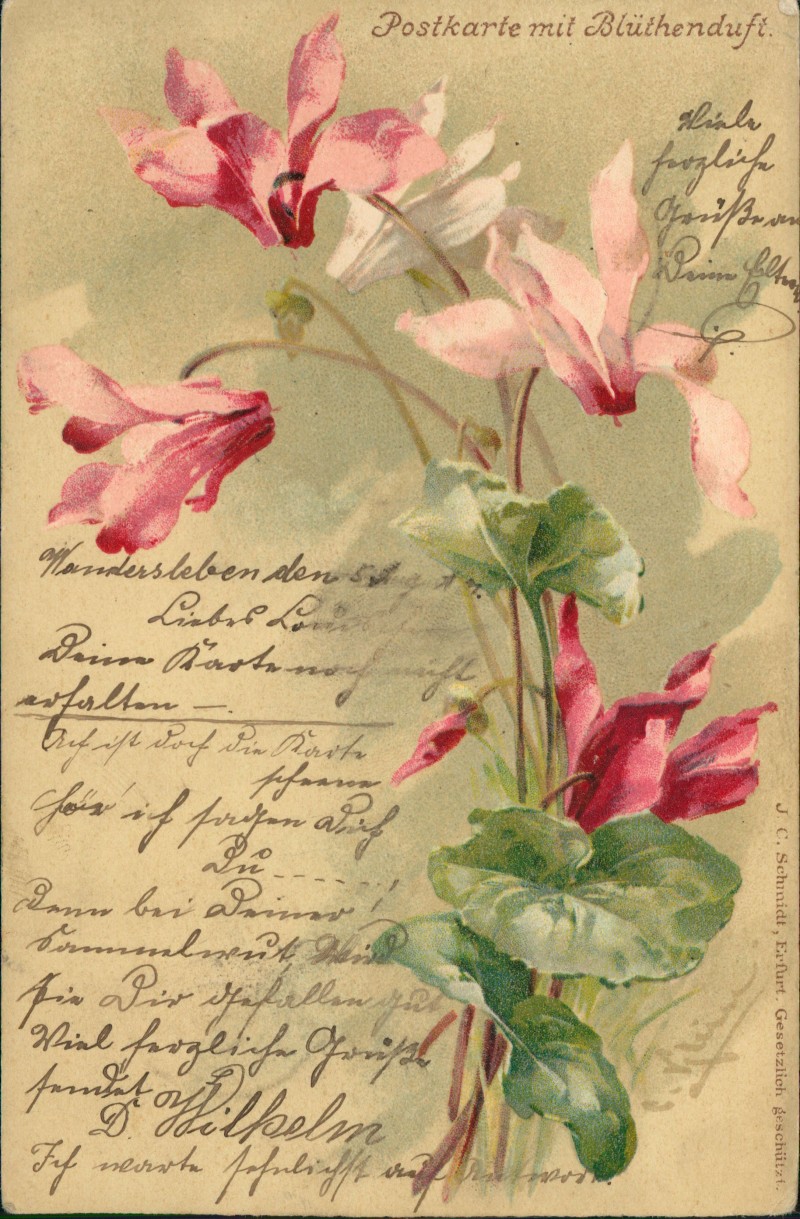 Postkarte mit Blüthenduft.
Viele
herzliche
Grüße an
Deine Eltern
Wandersleben den
Liebes Louis
Deine Karte noch nicht
erhalten —.
Ach ist doch die Karte
scheene
hör' ich sagen Dich
Du - - - - - !
Denn bei Deiner
Sammelwut, wird
sie Dir gefallen gut
Viel herzliche Grüße
sendet
D. Wilhelm
Ich warte sehnlichst auf Antwort.
J. C. Schmidt, Erfurt. Gesetzlich geschützt.